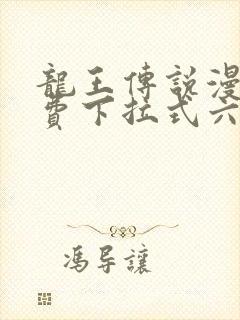 龍王傳說漫
費下拉式六
馮导讓